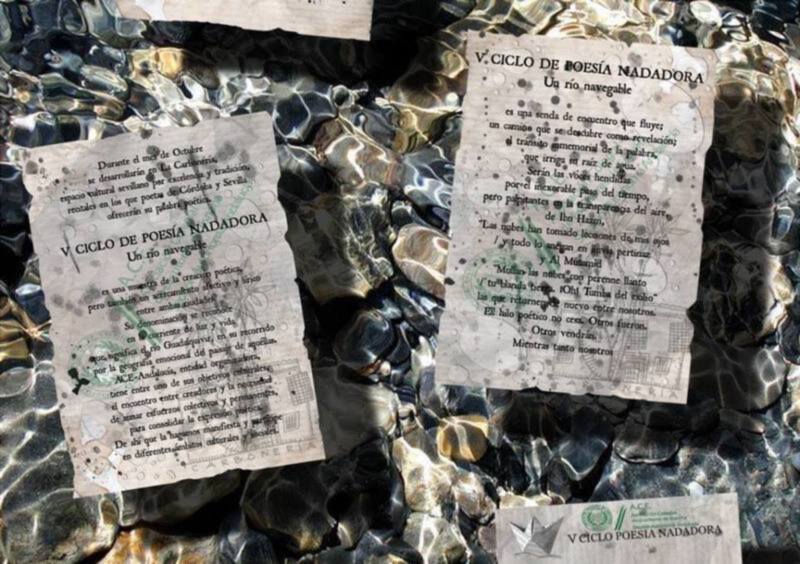 Durante el mes de Octubre
se desarrollarán en La Carbonería,
espacio cultural sevillano por excelencia y tradición,
recitales en los que poetas de Córdoba y Sevilla
ofrecerán su palabra poética.
V CICLO DE POESÍA NADADORA
Un río navegable
es una muestra de la creación poética,
pero también un acercamiento afectivo y lírico
entre ambas ciudades.
Su denominación se reconoce
en el torrente de luz y vida,
que significa el río Guadalquivir, en su recorrido
por la geografía emocional del paisaje de aquéllas.
ACE-Andalucía, entidad organizadora,
tiene entre uno de sus objetivos culturales,
el encuentro entre creadores y la necesidad
de aunar esfuerzos colectivos y permanentes,
para consolidar la expresión poética.
De ahí que la hagamos manifiesta y partícipe
en diferentes ámbitos culturales y sociales.
CARBONERIA
V CICLO DE POESÍA NADADORA
Un río navegable
es una senda de encuentro que fluye;
un camino que se descubre como revelación;
el tránsito inmemorial de la palabra,
que irriga su raíz de agua.
Serán las voces hendidas
por el inexorable paso del tiempo,
pero palpitantes en la transparencia del aire
de Ibn Hazm,
"Las nubes han tomado lecciones de mis ojos
y todo lo anegan en lluvia pertinaz"
Al Mutamid
"Mullan las nubes con perenne llanto
tu blanda tierra ¡Oh! Tumba del exilio"
las que retornen de nuevo entre nosotros.
El halo poético no cesa. Otros fueron.
Otros vendrán.
Mientras tanto nosotros
NERIA
A.C.E.
V CICLO POESIA NADADORA